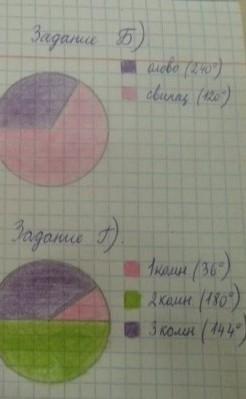 Задание Б)
олово (240°)
свинец (120°)
Задание Г).
1 комн (36°)
2 комн (180°)
3 комн (144°)